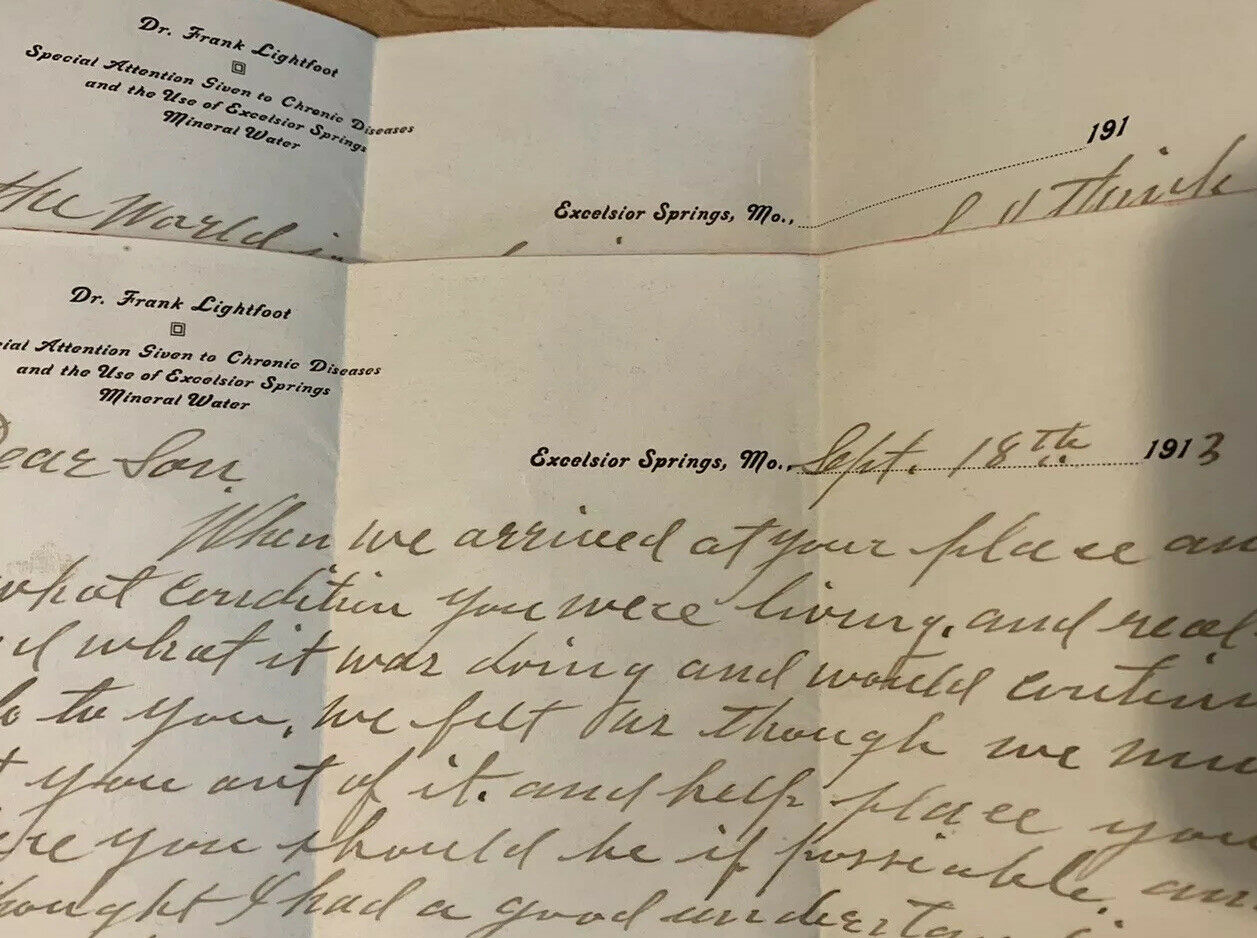 Dr. Frank Lightfoot
Special Attention Given to Chronic Diseases
and the Use of Excelsior Springs
Mineral Water
Excelsior Springs, Mo., 191
the World
think
Dr. Frank Lightfoot
ial Attention Given to Chronic Diseases
and the Use of Excelsior Springs
Mineral Water
Excelsior Springs, Mo., Sept. 18th 1913
Dear Son,
When we arrived at your place an
what condition you were living, and real
d what it was doing and would contin
to you, we felt as though we mu
t you out of it. and help place you
re you should be if possiable. an
thought I had a good understan